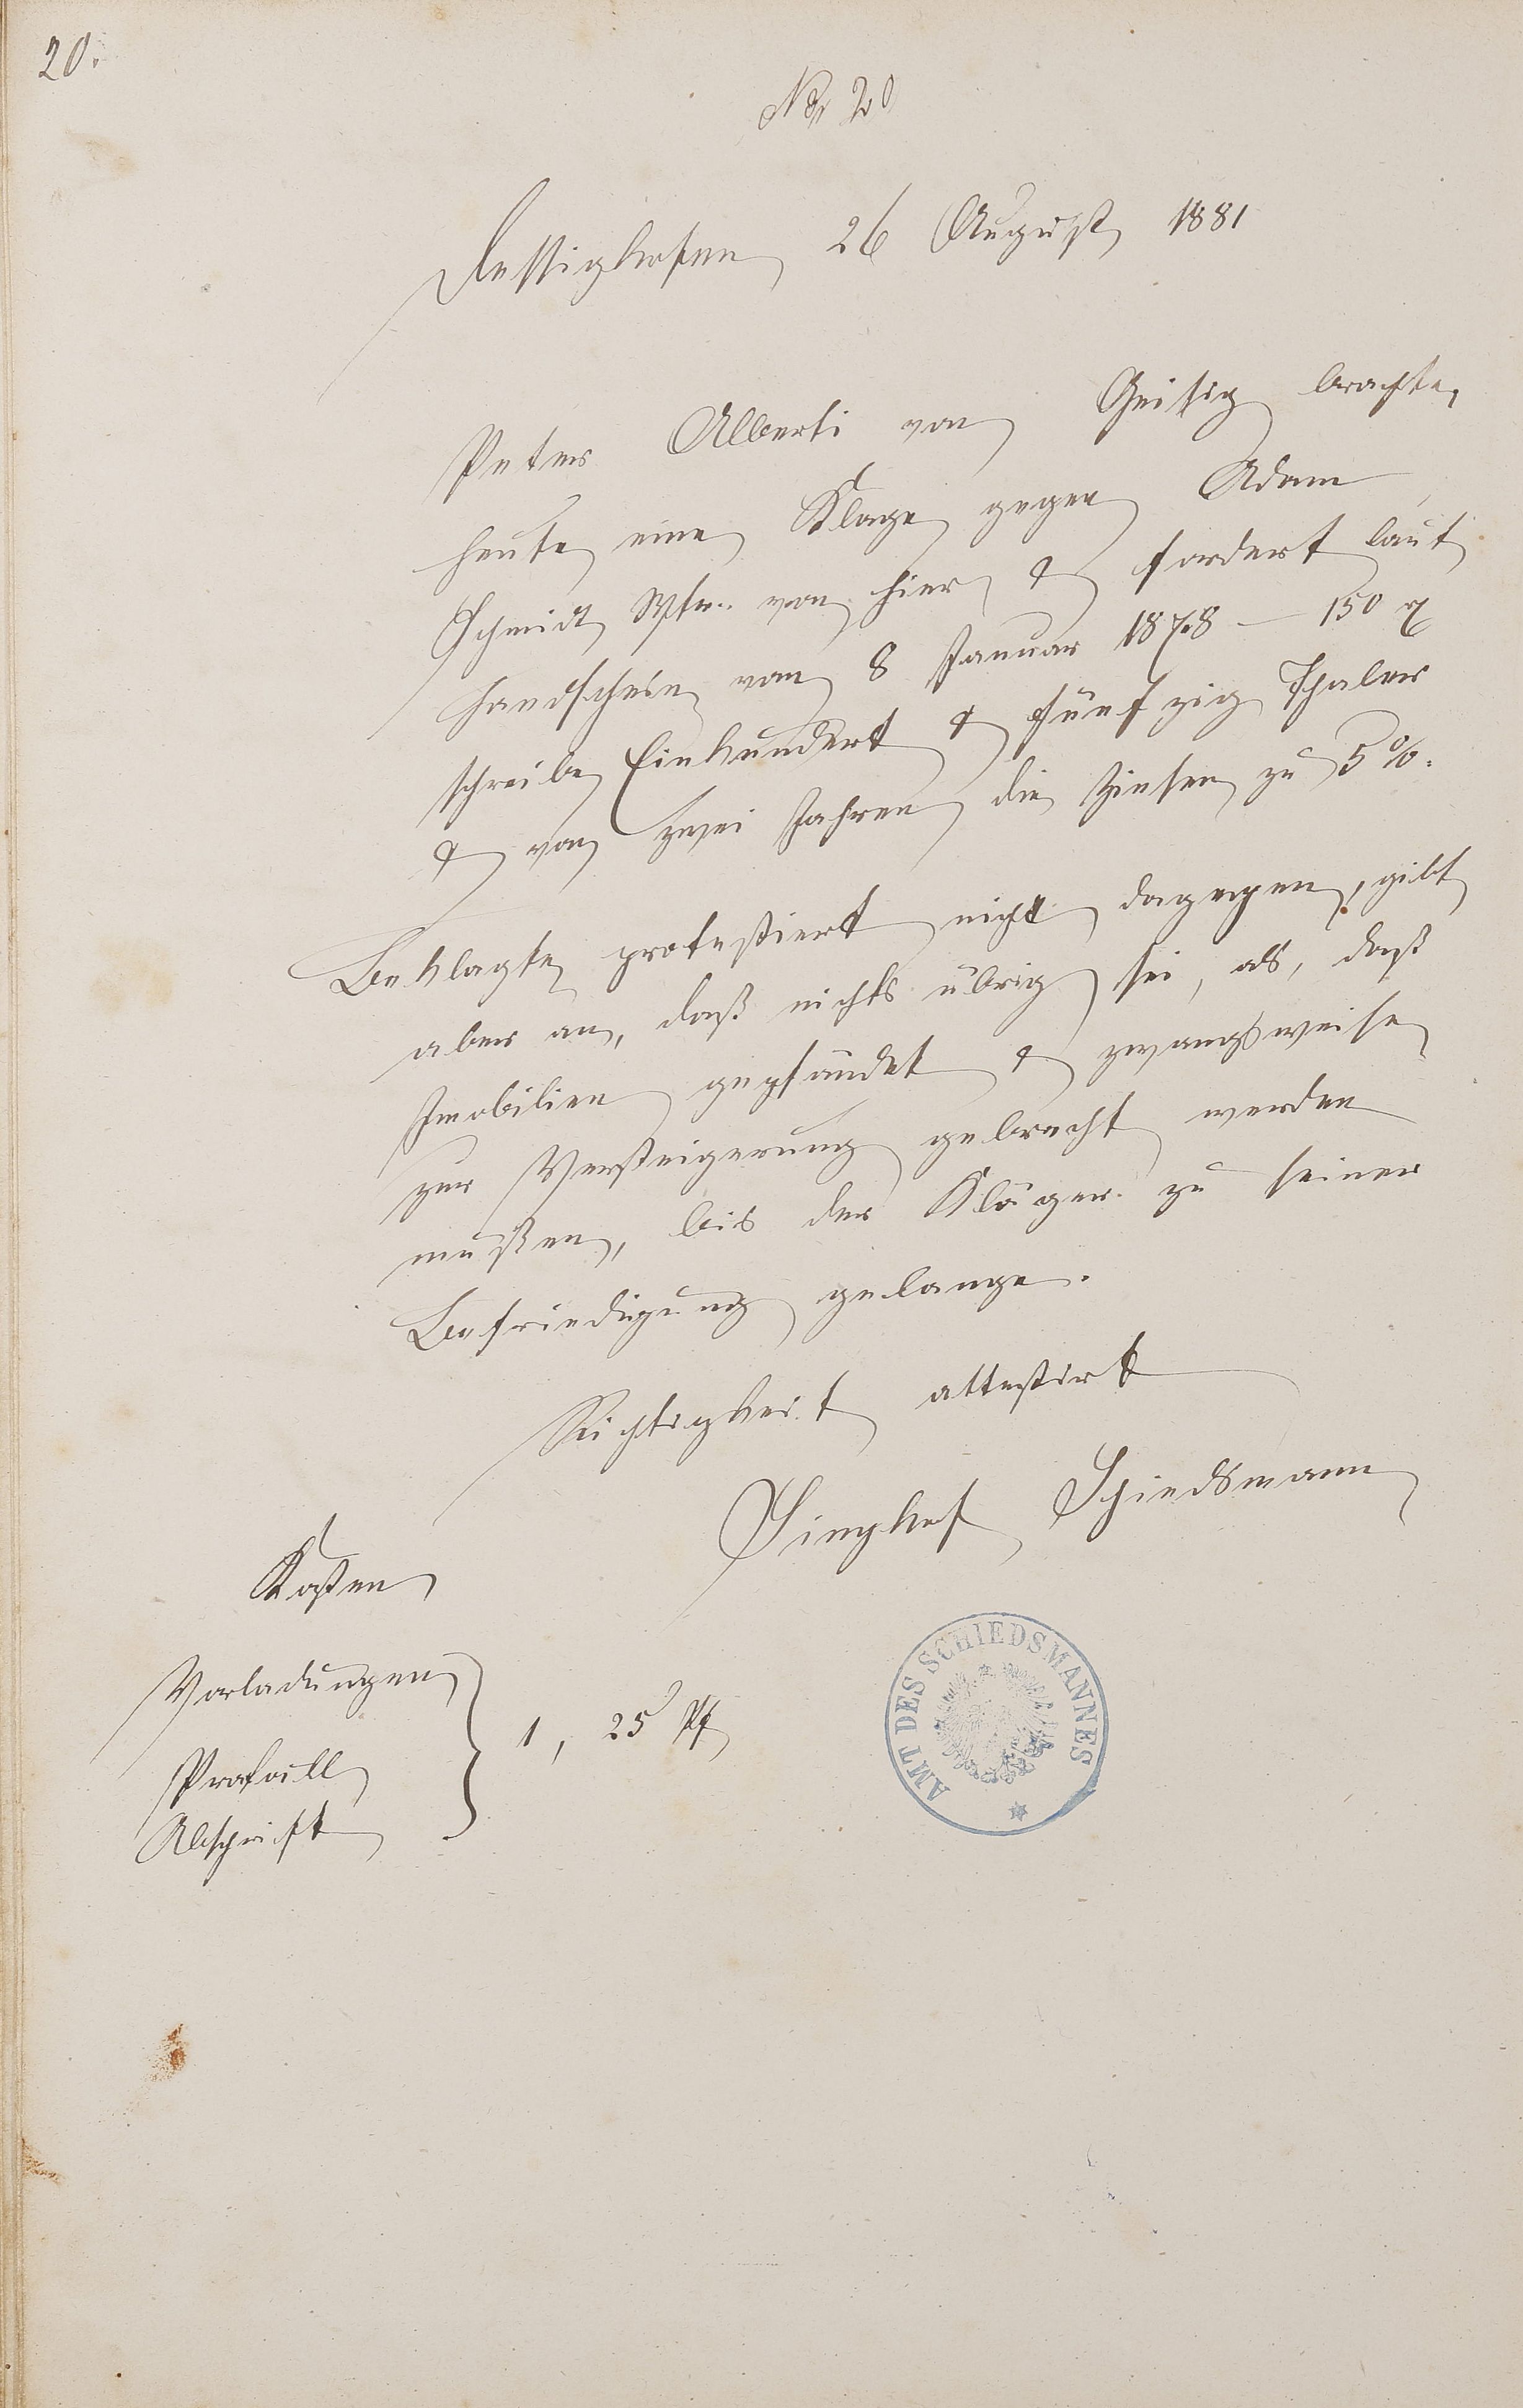 20.
No 20
Dessighofen 26 August 1881
Peter Alberti von Geisig brachte
heute eine Klage gegen Adam
Schmidt Wtw. von hier & fordert laut
Handschein vom 8 Januar 1878 — 150
schreibe Einhundert & fünfzig Thaler
& von zwei Jahren die Zinsen zu 5 %.
Beklagte protestiert nicht dagegen, gibt
aber an, daß nichts übrig sei, als, daß
Imobilien gepfändet & zwangsweise
zur Versteigerung gebracht werden
müßen, bis der Kläger zu seiner
Befriedigung gelange.
Richtigkeit attestirt
Schiedsmann
Kosten
Vorladungen
Protocoll
Abschrift
1, 25 Pf
AMT DES SCHIEDSMANNES